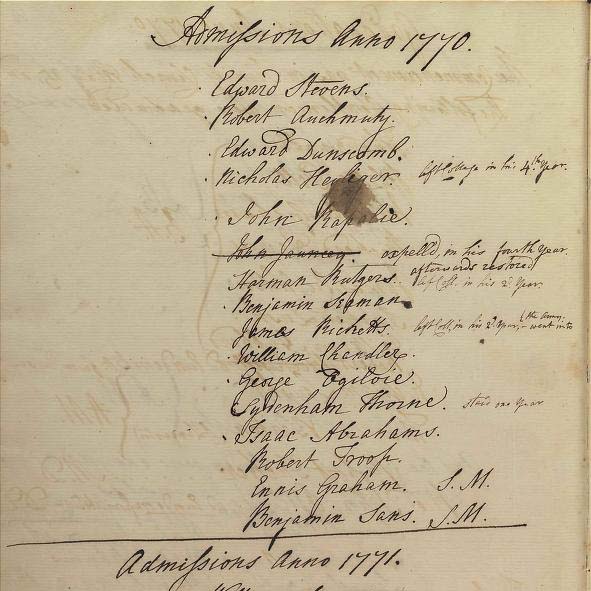 Admissions Anno 1770.
Edward Stevens.
Robert Auchmuty.
Edward Dunscomb.
Nicholas Heyliger. left College in his 4.th Year.
John Rapalie.
John Jauncey expell'd, in his fourth Year.
afterwards restored
Harman Rutgers. left Coll. in his 2.d Year.
Benjamin Seaman.
James Ricketts. left Coll. in his 2.d Year, & went into
the Army.
William Chandler.
George Ogilvie.
Sydenham Thorne. staid one Year
Isaac Abrahams.
Robert Troop.
Ennis Graham. S.M.
Benjamin Sans. S.M.
Admissions Anno 1771.